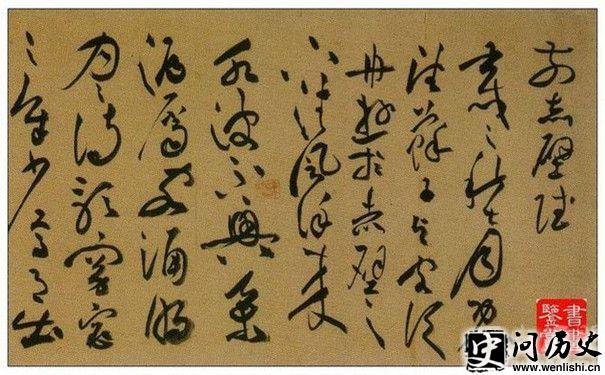 前赤壁賦
壬戌之秋七月既
望蘇子與客泛
舟遊於赤壁之
下清風徐來
水波不興舉
酒屬客誦明
月之詩歌窈窕
之章少焉月出
問历史
www.wenlishi.cn